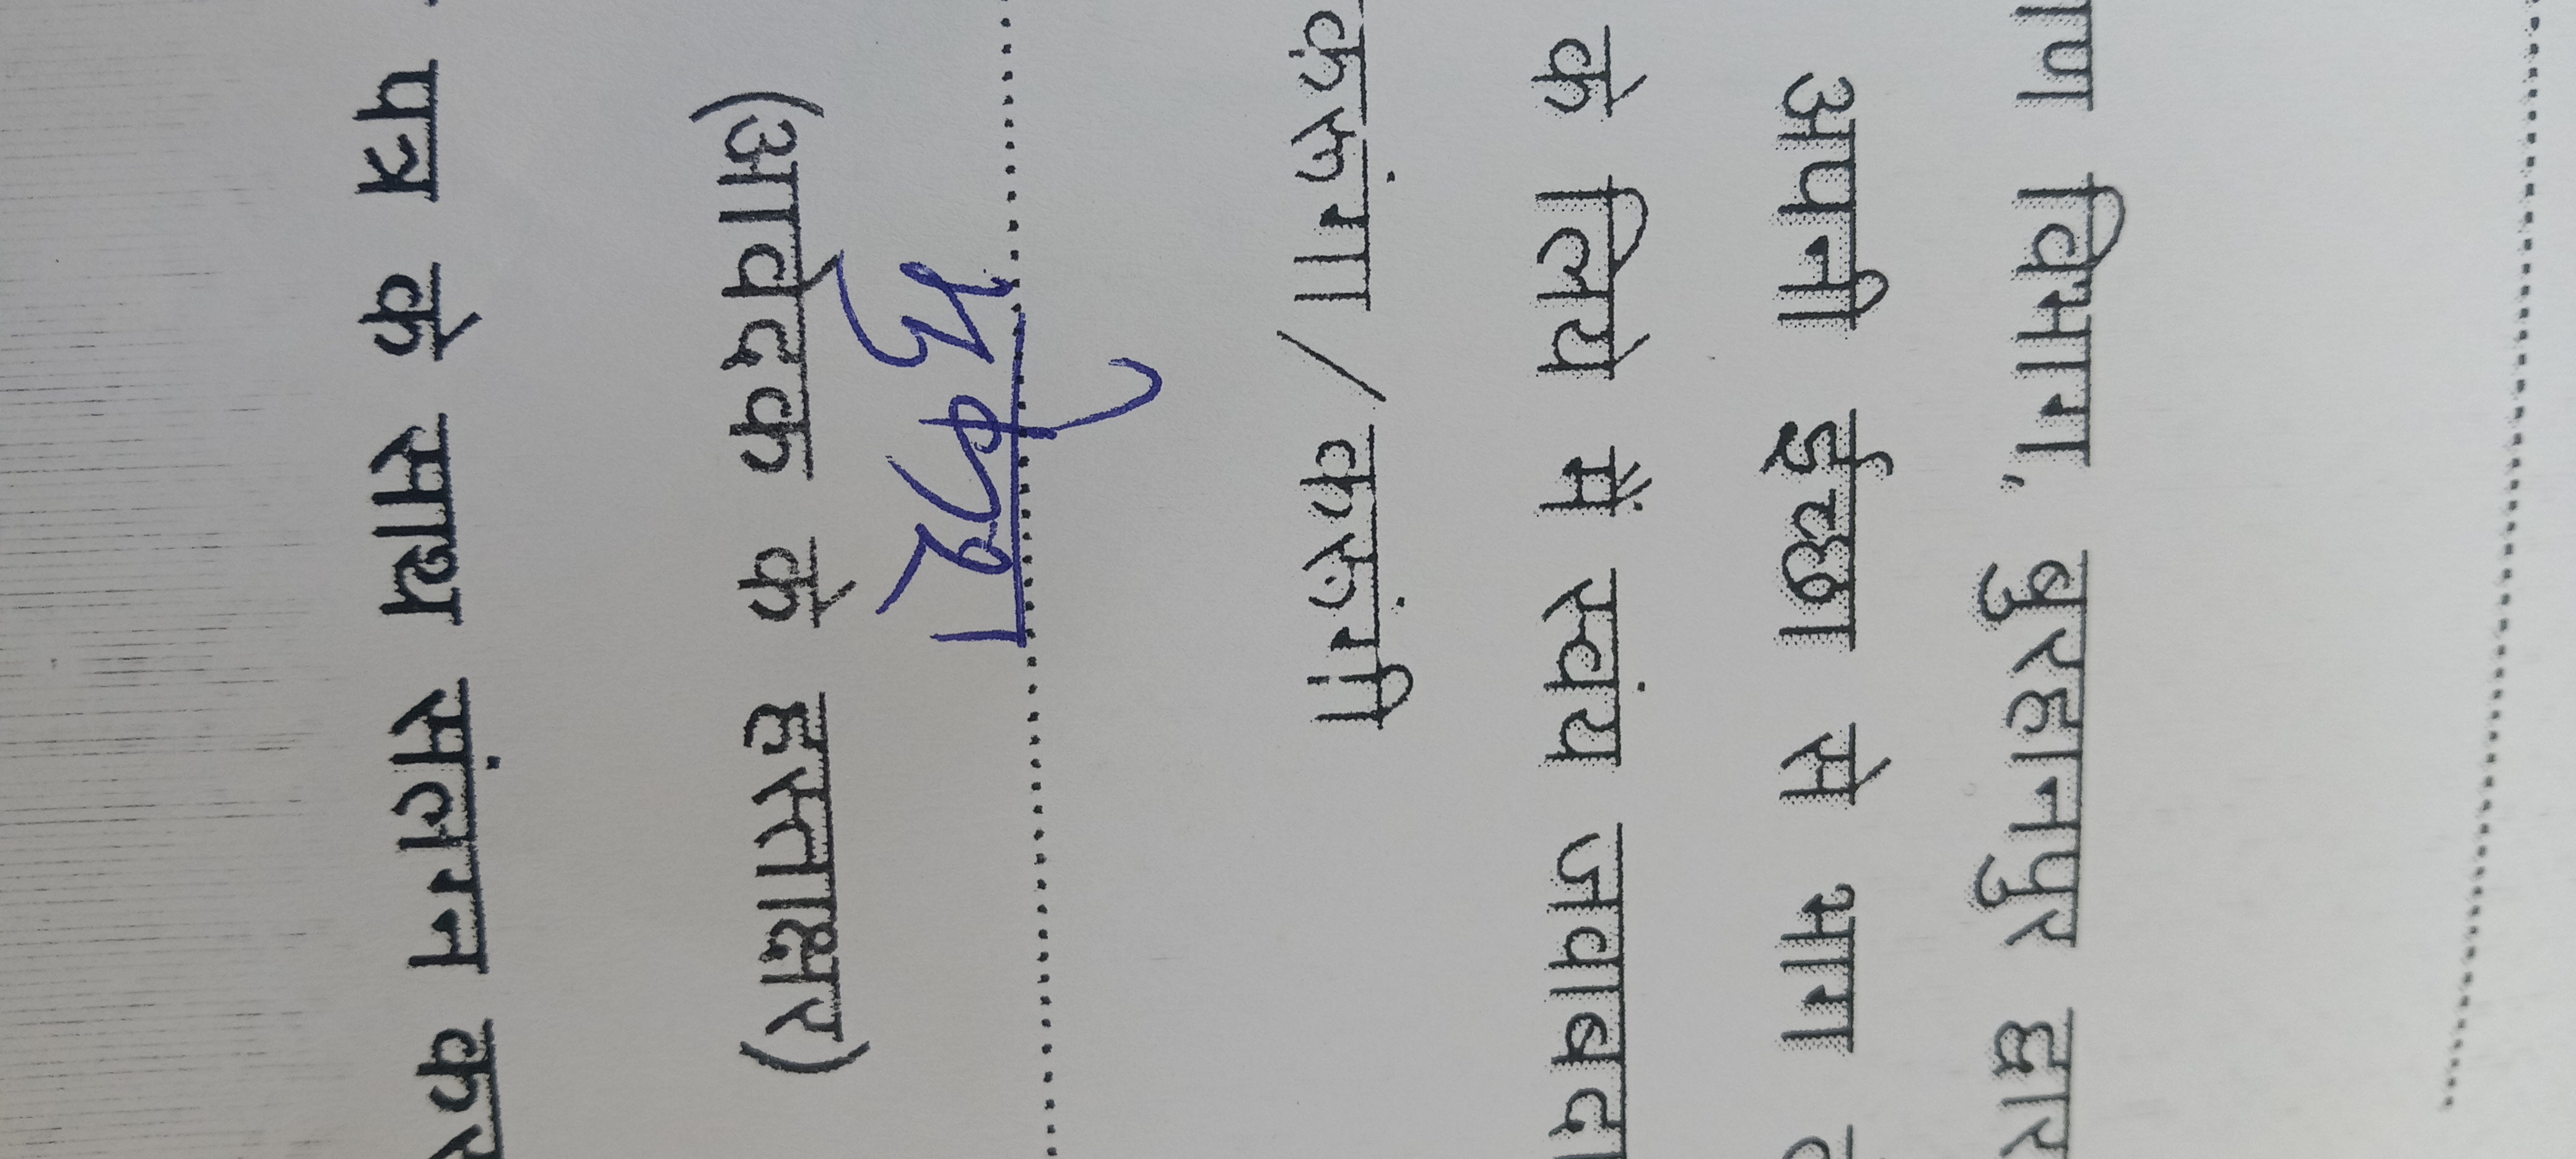 ाण विभाग, बुरहानपुर द्वार
अपनी ईच्छा से भाग
के लिये में स्वंय जवाबदा
करूंगा / करूंगी
मुकेश
(आवेदक के हस्ताक्षर)
पत्र के साथ संलग्न कर